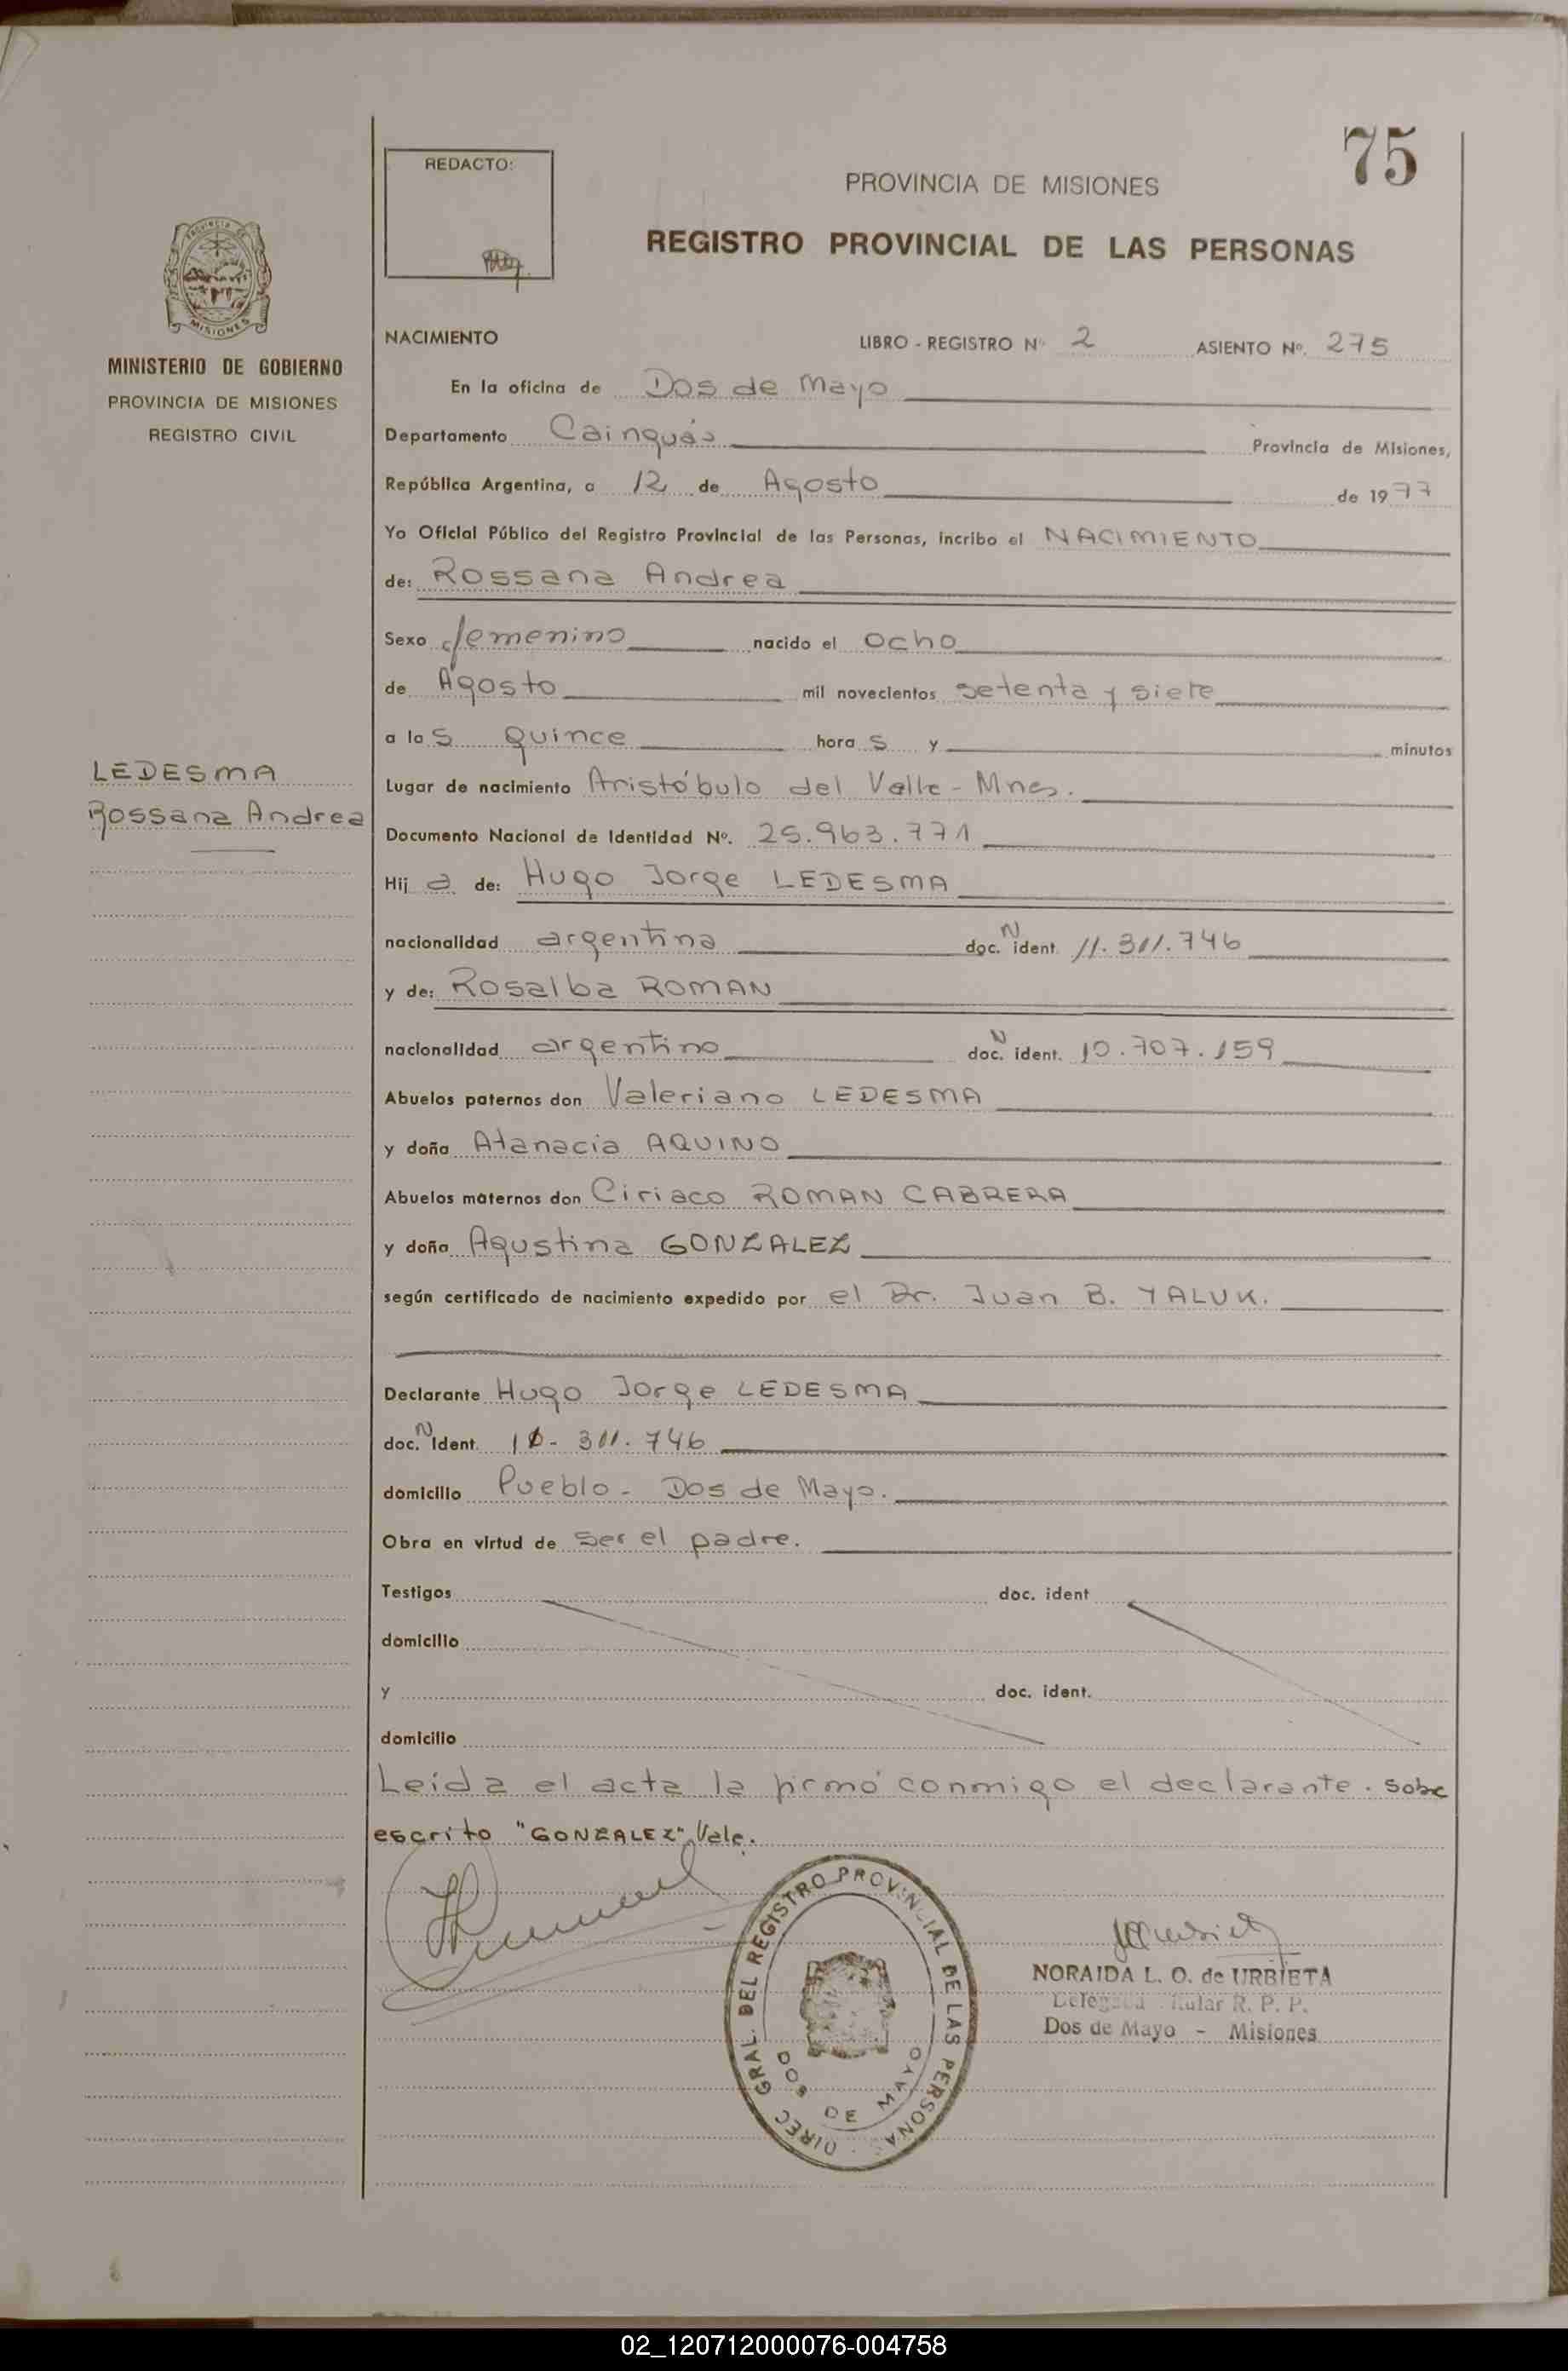 75
REDACTO:
PROVINCIA DE MISIONES
REGISTRO PROVINCIAL DE LAS PERSONAS
PROVINCIA DE
MISIONES
MINISTERIO DE GOBIERNO
PROVINCIA DE MISIONES
REGISTRO CIVIL
NACIMIENTO LIBRO - REGISTRO Nº 2 ASIENTO Nº. 275
En la oficina de Dos de Mayo
Departamento Cainguás Provincia de Misiones,
República Argentina, a 12 de Agosto de 1977
Yo Oficial Público del Registro Provincial de las Personas, incribo el NACIMIENTO
de: Rossana Andrea
Sexo femenino nacido el ocho
de Agosto mil novecientos setenta y siete
a las quince horas y minutos
LEDESMA
Rossana Andrea
Lugar de nacimiento Aristóbulo del Valle - Mnes.
Documento Nacional de Identidad Nº. 25.963.771
Hija de: Hugo Jorge LEDESMA
nacionalidad argentina doc. N ident. 11.311.746
y de: Rosalba ROMAN
nacionalidad argentino doc. N ident. 10.707.159
Abuelos paternos don Valeriano LEDESMA
y doña Atanacia AQUINO
Abuelos maternos don Ciriaco ROMAN CABRERA
y doña Agustina GONZALEZ
según certificado de nacimiento expedido por el Dr. Juan B. YALUK.
Declarante Hugo Jorge LEDESMA
doc. N ident. 311.746
domicilio Pueblo - Dos de Mayo.
Obra en virtud de ser el padre.
Testigos doc. ident
domicilio
y doc. ident.
domicilio
Leida el acta la firmó conmigo el declarante. sobre
escrito "GONZALEZ" Vale.
DIREC GRAL. DEL REGISTRO PROVINCIAL DE LAS PERSONAS
DOS DE MAYO
NORAIDA L. O. de URBIETA
R. P. P.
Dos de Mayo - Misiones
02_120712000076-004758